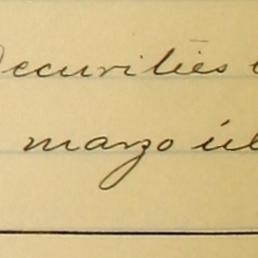 Securities
marzo úl